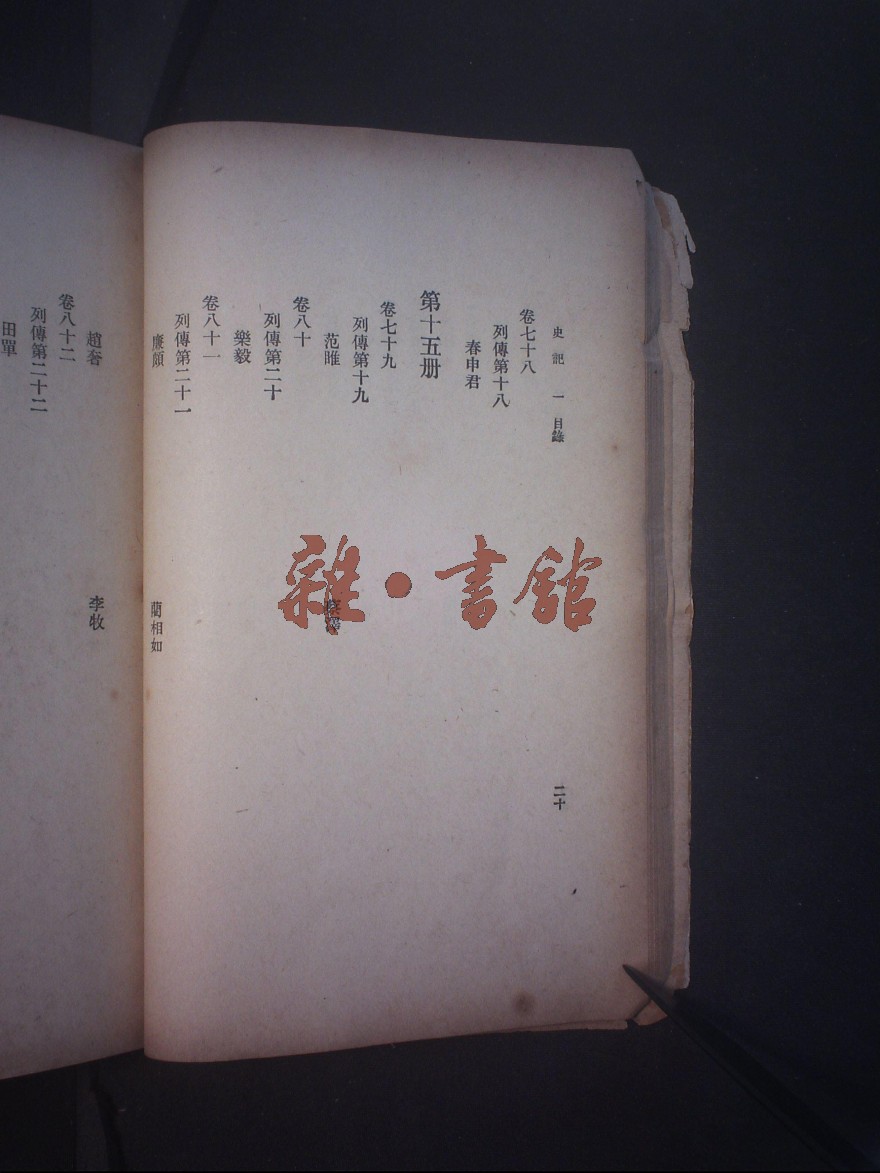 史記 一 目錄
二十
卷七十八
列傳第十八
春申君
第十五册
卷七十九
列傳第十九
范睢
蔡澤
卷八十
列傳第二十
樂毅
卷八十一
列傳第二十一
廉頗
藺相如
趙奢
李牧
卷八十二
列傳第二十二
田單
雜·書館